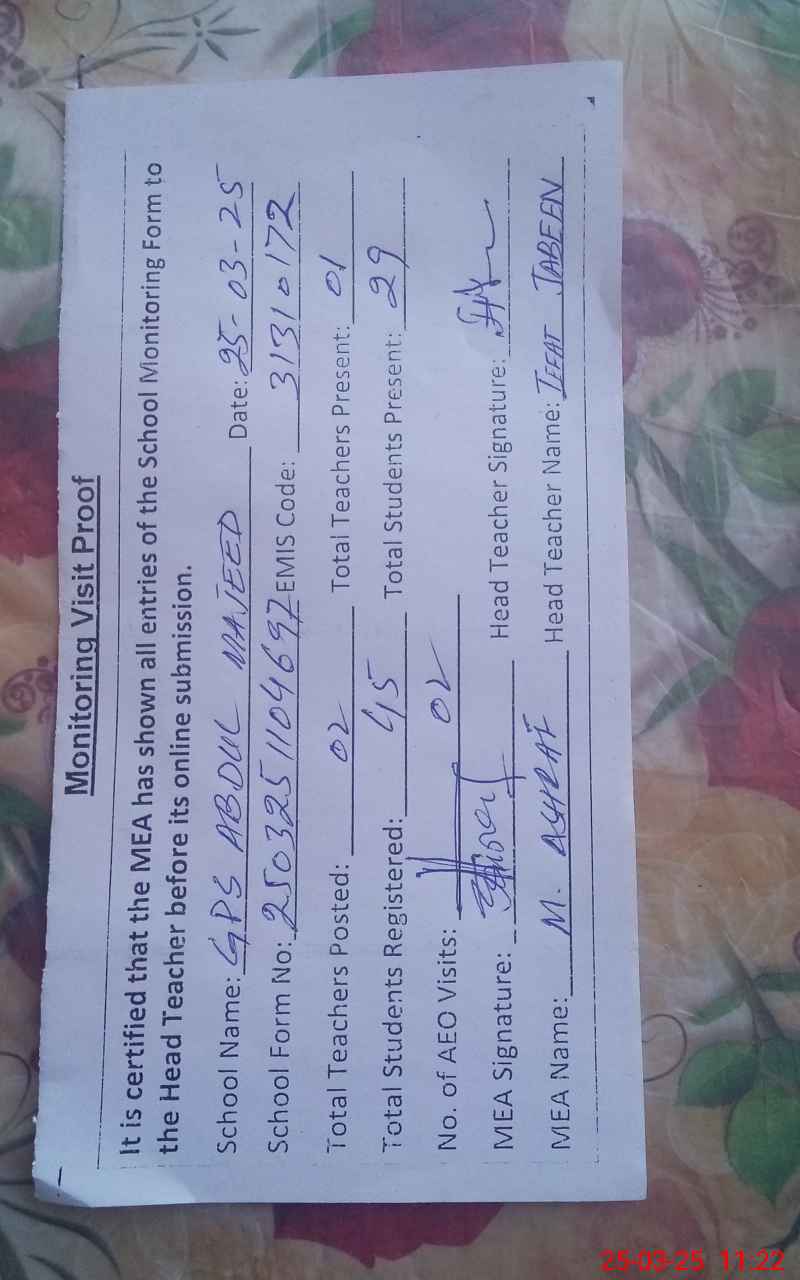 Monitoring Visit Proof
It is certified that the MEA has shown all entries of the School Monitoring Form to
the Head Teacher before its online submission.
School Name: GPS ABDUL MAJEED Date: 25-03-25
School Form No: 250325110469 EMIS Code: 31310172
Total Teachers Posted: 02 Total Teachers Present: 01
Total Students Registered: 45 Total Students Present: 29
No. of AEO Visits: 02
MEA Signature: Head Teacher Signature:
MEA Name: M. ASHRAF Head Teacher Name: IFFAT JABEEN
25-03-25 11:22